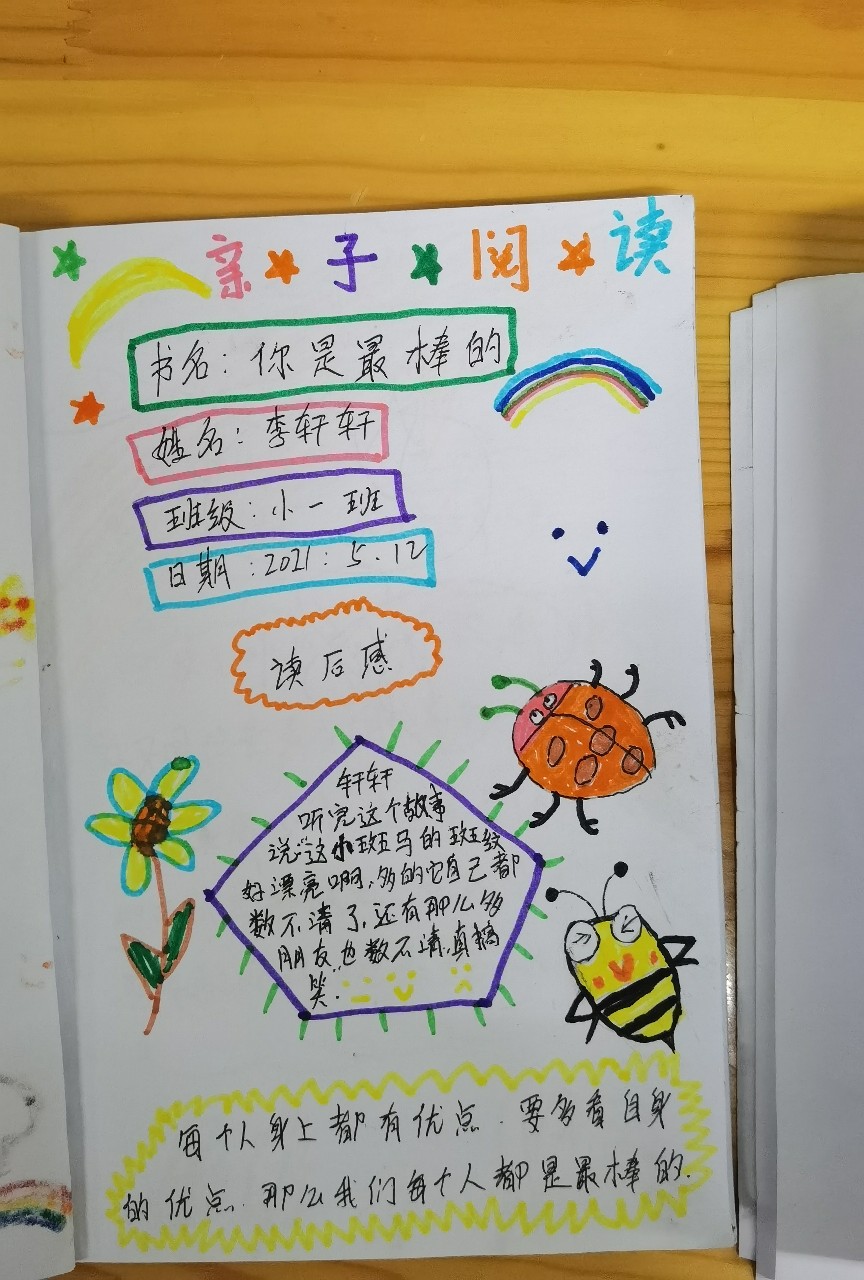 亲子阅读
书名：你是最棒的
姓名：李轩轩
班级：小一班
日期：2021：5.12
读后感
轩轩
听完这个故事
说“这小斑马的斑纹
好漂亮啊，多的它自己都
数不清了，还有那么多
朋友也数不清，真搞
笑”
每个人身上都有优点.要多看自身
的优点.那么我们每个人都是最棒的.